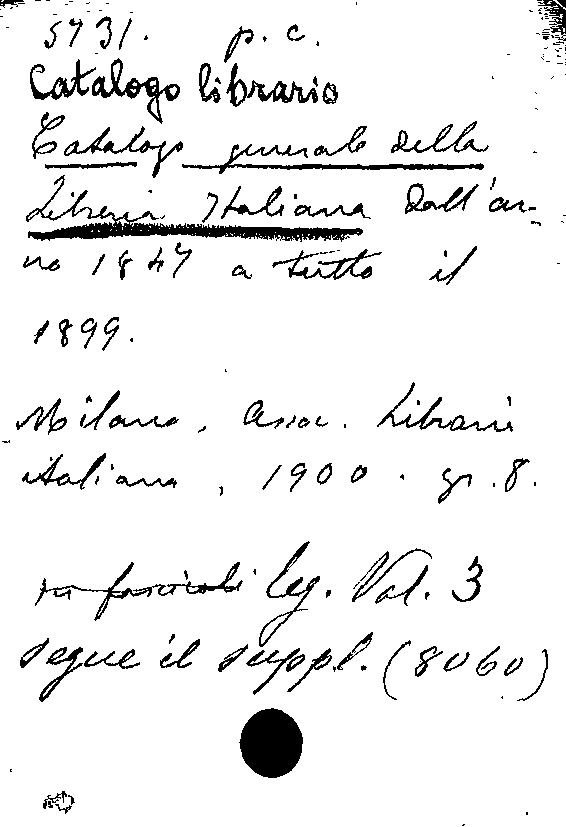 5731. p. c.
Catalogo librario
Catalogo generale della
Libreria Italiana dall'an-
no 1847 a tutto il
1899.
Milano, Assoc. Libraria
italiana, 1900. gr. 8.
in fascicoli leg. Vol. 3
segue il suppl. (8060)